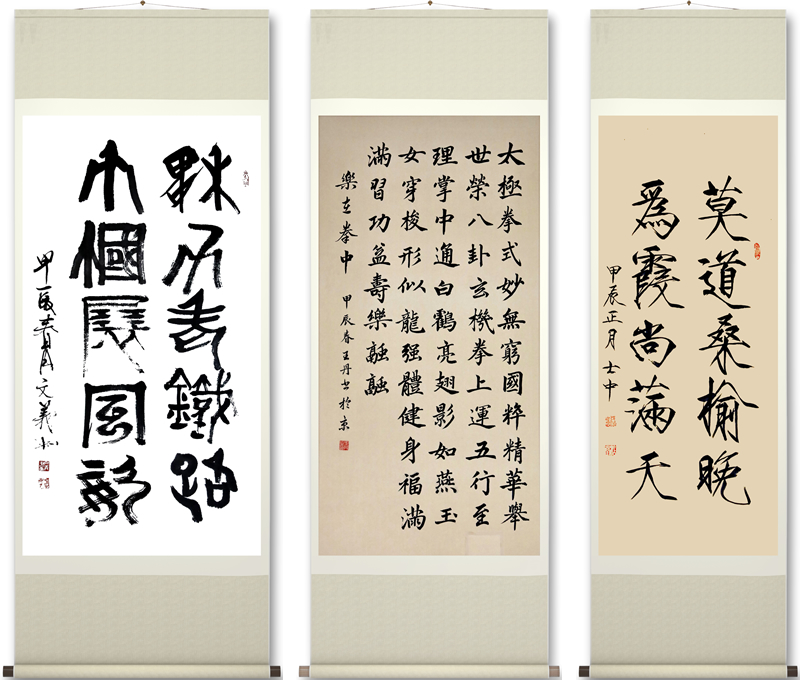 老鐵路
巾幗展風韵
甲辰春月文義书
太極拳式妙無窮國粹精華舉
世榮八卦玄機拳上運五行至
理掌中通白鶴亮翅影如燕玉
女穿梭形似龍强體健身福滿
滿習功益壽樂融融
樂在拳中 甲辰春王丹书於京
莫道桑榆晚
爲霞尚滿天
甲辰正月 士中